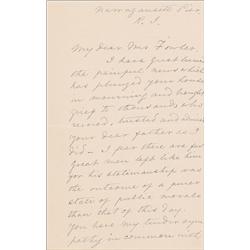 Narragansett Pier,
R. I.
My Dear Mrs Fowler.
I have just learned
the painful news which
has plunged your house
in mourning and brought
grief to thousands who
revered, trusted and admired
your dear father as I
did – I fear there are few
great men left like him
for his statesmanship was
the outcome of a purer
state of public morals
than that of this day.
You have my tender sym
pathy in common with